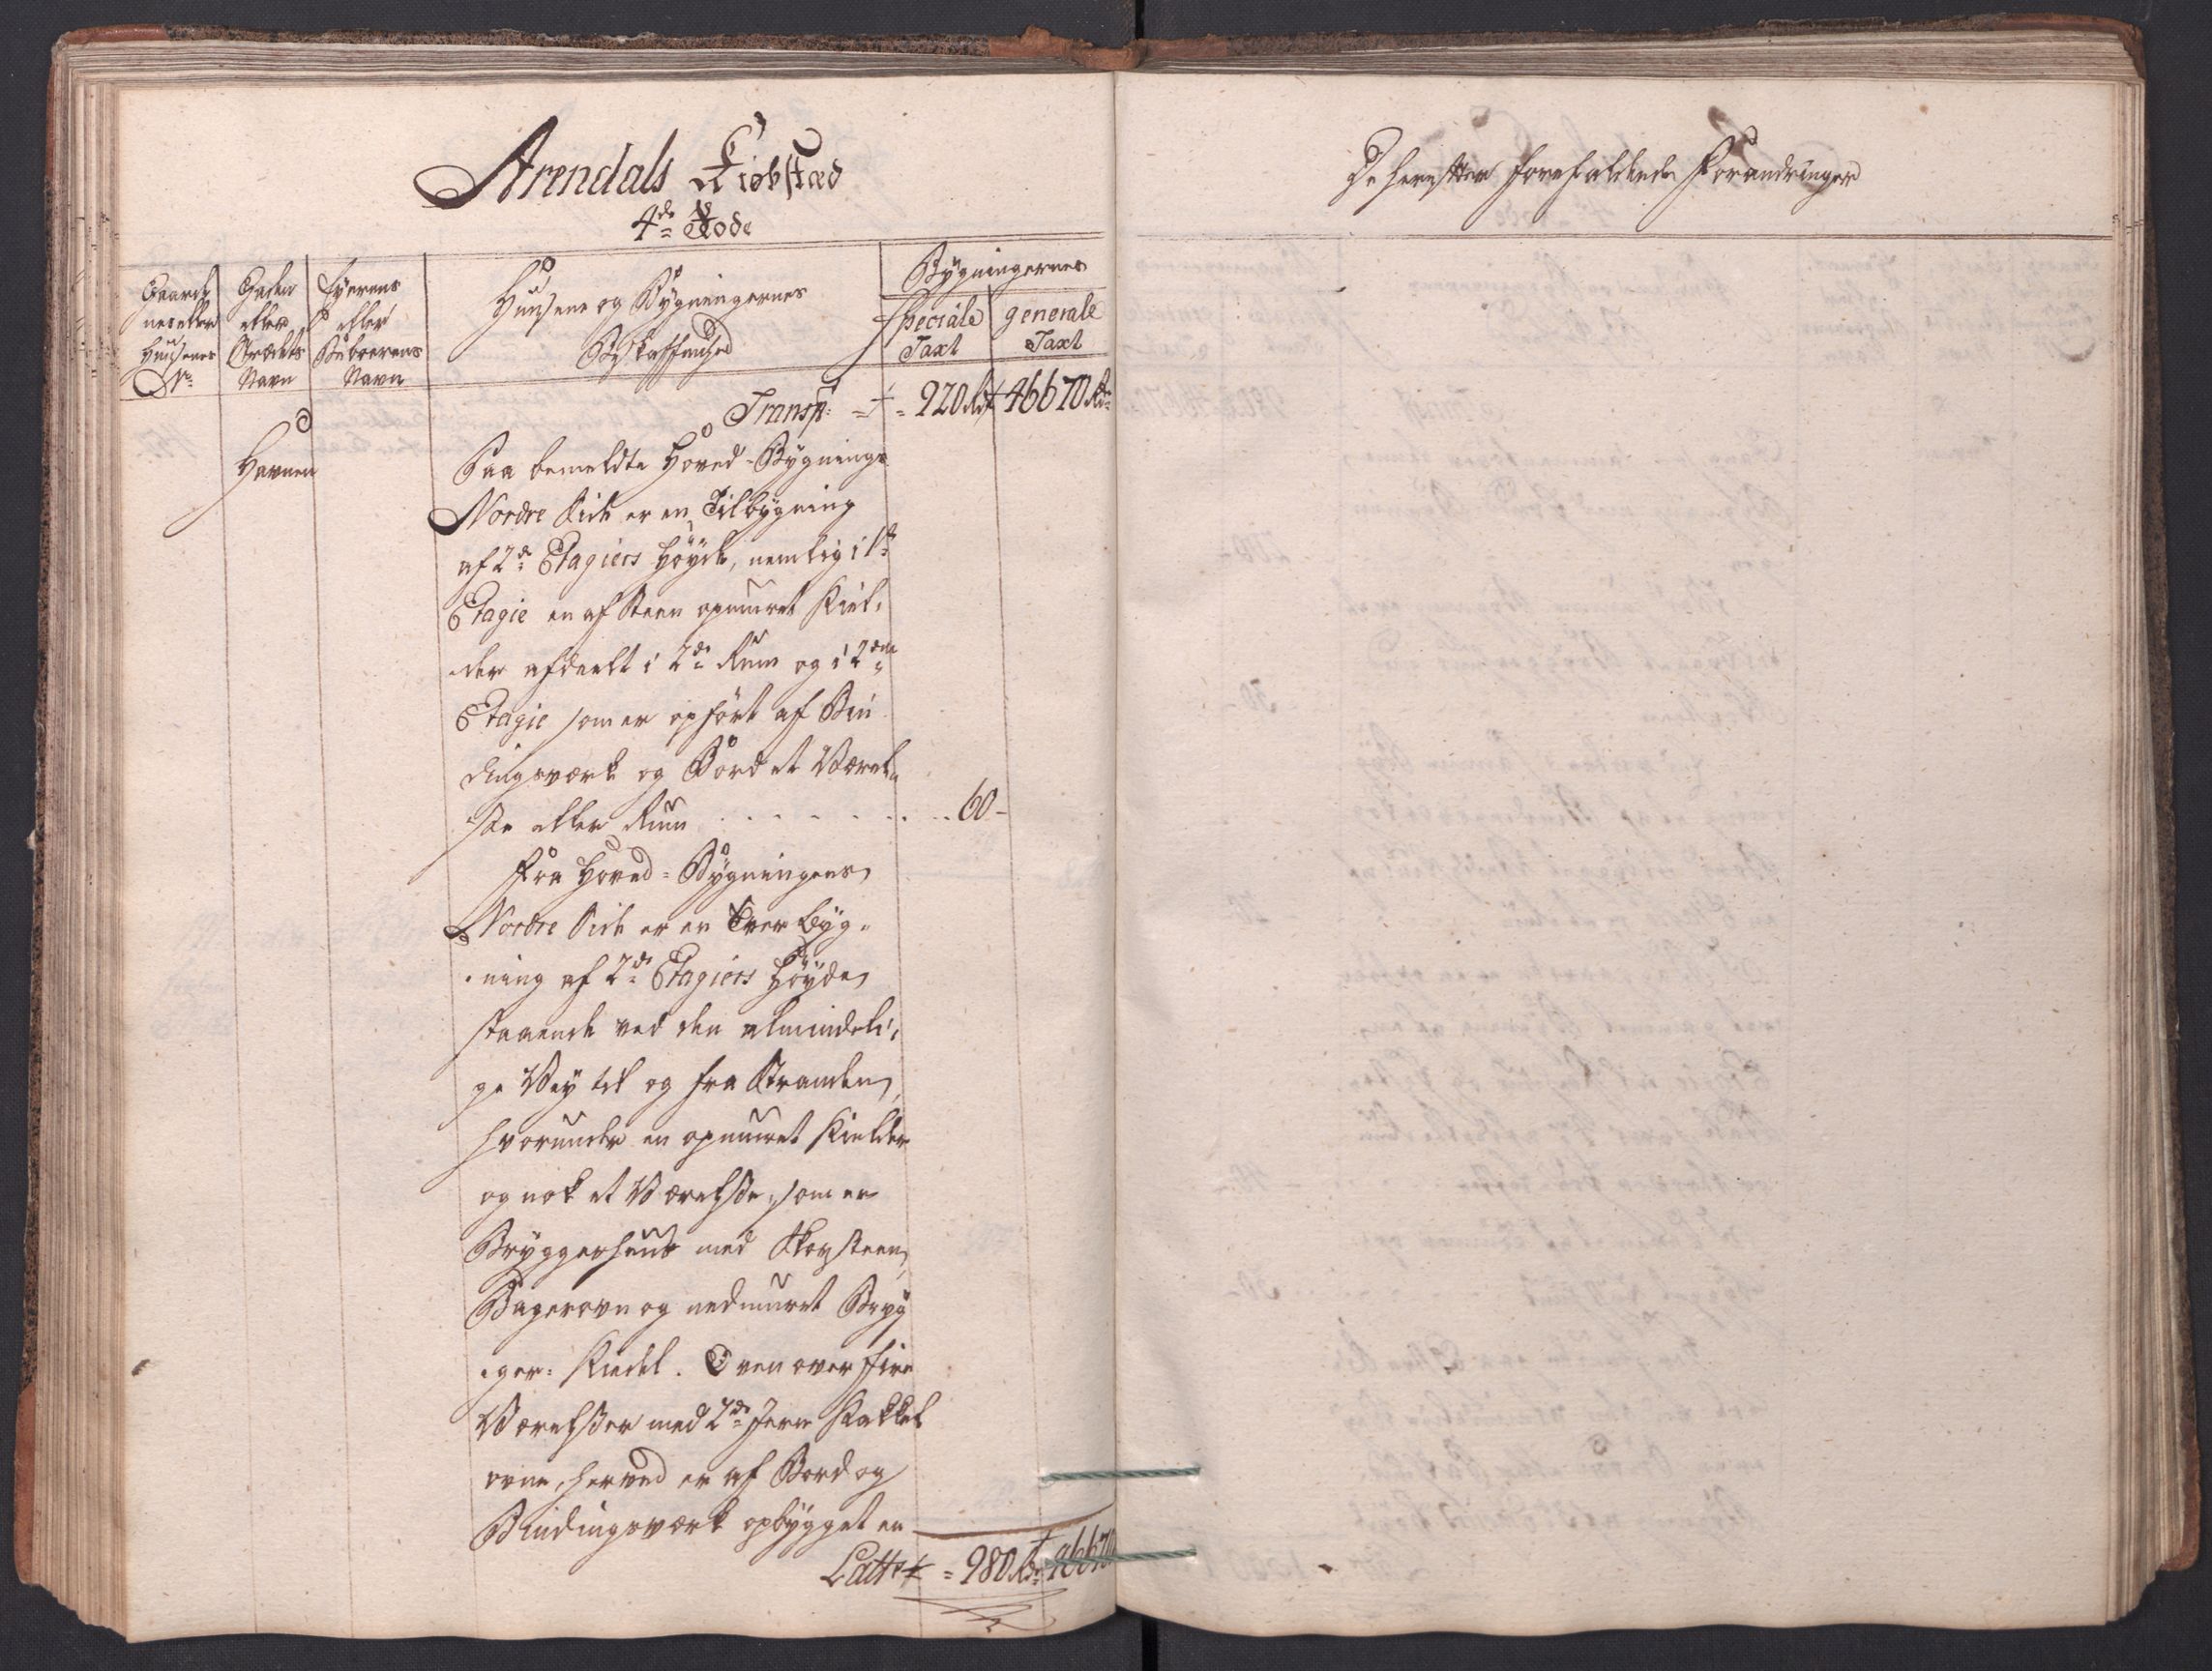 Arendals Kiöbstæd
4de Rode
Gaarde
nes eller
Huusenes
No
Gaden
eller
Strædets
Navn
Eyerens
eller
Beboerens
Navn
Huusene og Bygningernes
Beskaffenhed
Bygningernes
Speciale
Taxt
generale
Taxt
Transp: 920 Rd 46670 Rd
Havnen
Paa bemeldte Hoved-Bygnings
Nordre Side er en Tilbygning
af 2de Etagiers Höyde, nemlig i 1te
Etagie en af Steen opmuuret Kiel-
der afdeelt i 2de Rum og i 2den
Etagie som er opfört af Bin
dingsværk og Bord et Værel-
se eller Rum . . . . . . . 60-
Fra Hoved-Bygningens
Nordre Side er en Tver Byg-
ning af 2de Etagiers Höyde
staaende ved den almindeli-
ge Vey til og fra Stranden,
hvorunder en opmuuret Kielder
og nok et Værelse, som er
Bryggerhuus med Skorsteen,
Bagerovn og nedmuuret Bryg
ger-Kiedel. Oven over fire
Værelser med 2de Jern Kakkel
ovne, herved er af Bord og
Bindingsværk opbygget en
Latter 980 Rd 46670
De herefter forefaldende Forandringer